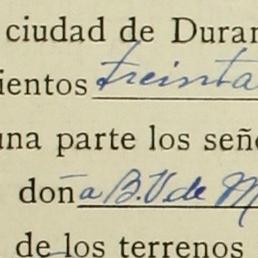 ciudad de Duran
ientos treinta
una parte los seño
doña B. V. de M
de los terrenos